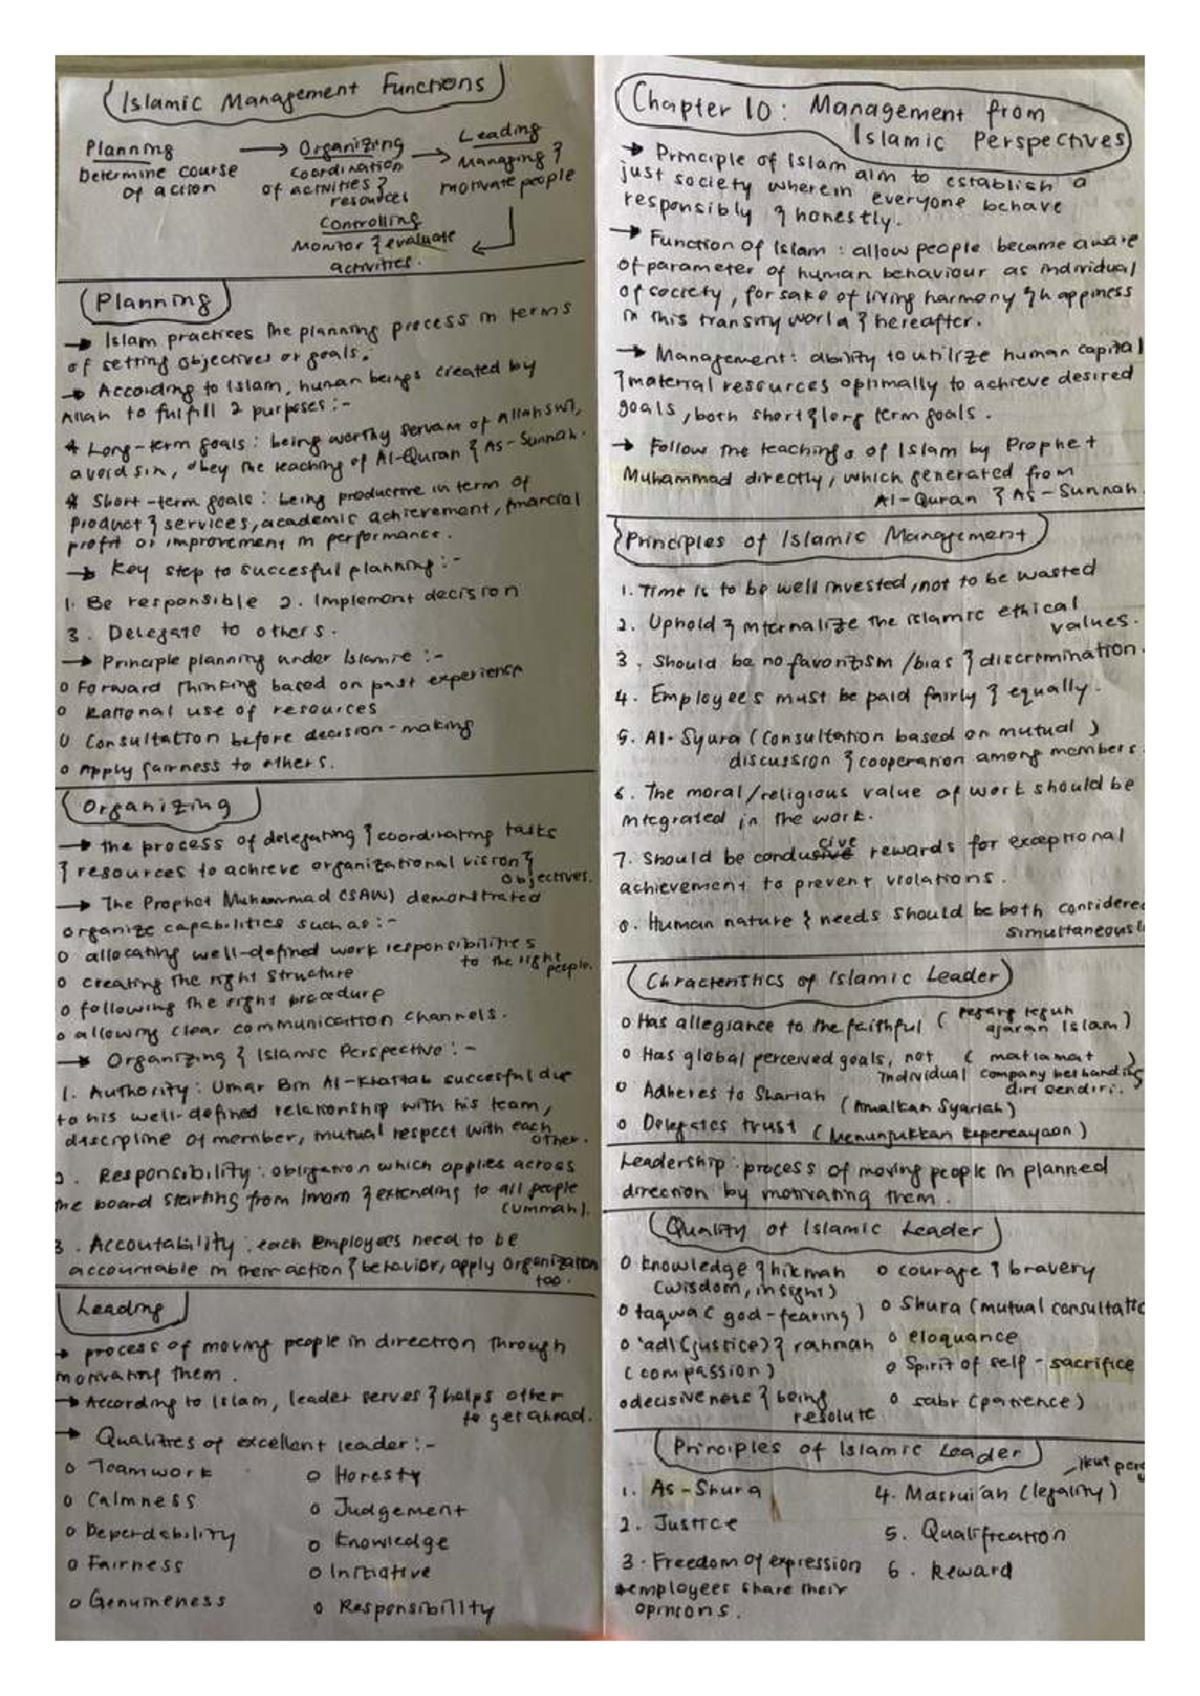 Islamic Management Functions
Planning → Organizing → Leading
Determine course of action
coordination of activities & resources
Managing & motivate people
Controlling
Monitor & evaluate
activities.
Planning
→ Islam practices the planning process in terms
of setting objectives or goals.
→ According to Islam, human beings created by
Allah to fulfill 2 purposes :-
* Long-term goals : being worthy servant of Allah SWT,
avoid sin, obey the teaching of Al-Quran & As-Sunnah.
* Short-term goals : being productive in term of
product & services, academic achievement, financial
profit or improvement in performance.
→ Key step to succesful planning :-
1. Be responsible 2. Implement decision
3. Delegate to others.
→ Principle planning under Islamic :-
o Forward thinking based on past experience
o Rational use of resources
o Consultation before decision-making
o Apply fairness to others.
Organizing
→ the process of delegating & coordinating tasks
& resources to achieve organizational vision &
objectives.
→ The Prophet Muhammad (SAW) demonstrated
organize capabilities such as :-
o allocating well-defined work responsibilities
to the right people.
o creating the right structure
o following the right procedure
o allowing clear communication channels.
→ Organizing & Islamic Perspective : -
1. Authority : Umar Bin Al-Khattab succesful due
to his well-defined relationship with his team,
discipline of member, mutual respect with each
other.
2. Responsibility : obligation which applies across
the board starting from Imam & extending to all people
(ummah).
3. Accoutability : each employees need to be
accountable in their action & behavior, apply organization
too.
Leading
→ process of moving people in direction through
motivating them.
→ According to Islam, leader serves & helps other
to get ahead.
→ Qualities of excellent leader :-
o Teamwork o Honesty
o Calmness o Judgement
o Dependability o Knowledge
o Fairness o Initiative
o Genuineness o Responsibility
Chapter 10 : Management from
Islamic Perspectives
→ Principle of Islam aim to establish a
just society wherein everyone behave
responsibly & honestly.
→ Function of Islam : allow people became aware
of parameter of human behaviour as individual
of society, for sake of living harmony & happiness
in this transity world & hereafter.
→ Management : ability to utilize human capital
& material resources optimally to achieve desired
goals, both short & long term goals.
→ Follow the teachings of Islam by Prophet
Muhammad directly, which generated from
Al-Quran & As-Sunnah.
Principles of Islamic Management
1. Time is to be well invested, not to be wasted
2. Uphold & internalize the islamic ethical
values.
3. Should be no favoritism/bias & discrimination.
4. Employees must be paid fairly & equally.
5. Al-Syura (Consultation based on mutual )
discussion & cooperation among members
6. The moral/religious value of work should be
integrated in the work.
7. Should be conducive rewards for exceptional
achievement to prevent violations.
8. Human nature & needs should be both considered
simultaneousl
Chracteristics of Islamic Leader
o Has allegiance to the faithful ( pegang teguh
ajaran Islam )
o Has global perceived goals, not individual ( matlamat company berbanding diri sendiri. )
o Adheres to Shariah (Amalkan Syariah)
o Delegates trust (Menunjukkan kepercayaan)
Leadership : process of moving people in planned
direction by motivating them.
Quality of Islamic Leader
o knowledge & hikmah o courage & bravery
(wisdom, insight)
o taqwa ( god-fearing ) o Shura (mutual consultatio
o 'adl (justice) & rahmah o eloquance
( compassion ) o Spirit of self-sacrifice
o decisiveness & being o sabr (patience)
resolute
Principles of Islamic Leader
ikut
1. As-Shura 4. Masrui'ah (legality)
2. Justice 5. Qualification
3. Freedom of expression 6. Reward
→ employees share their
opinions.